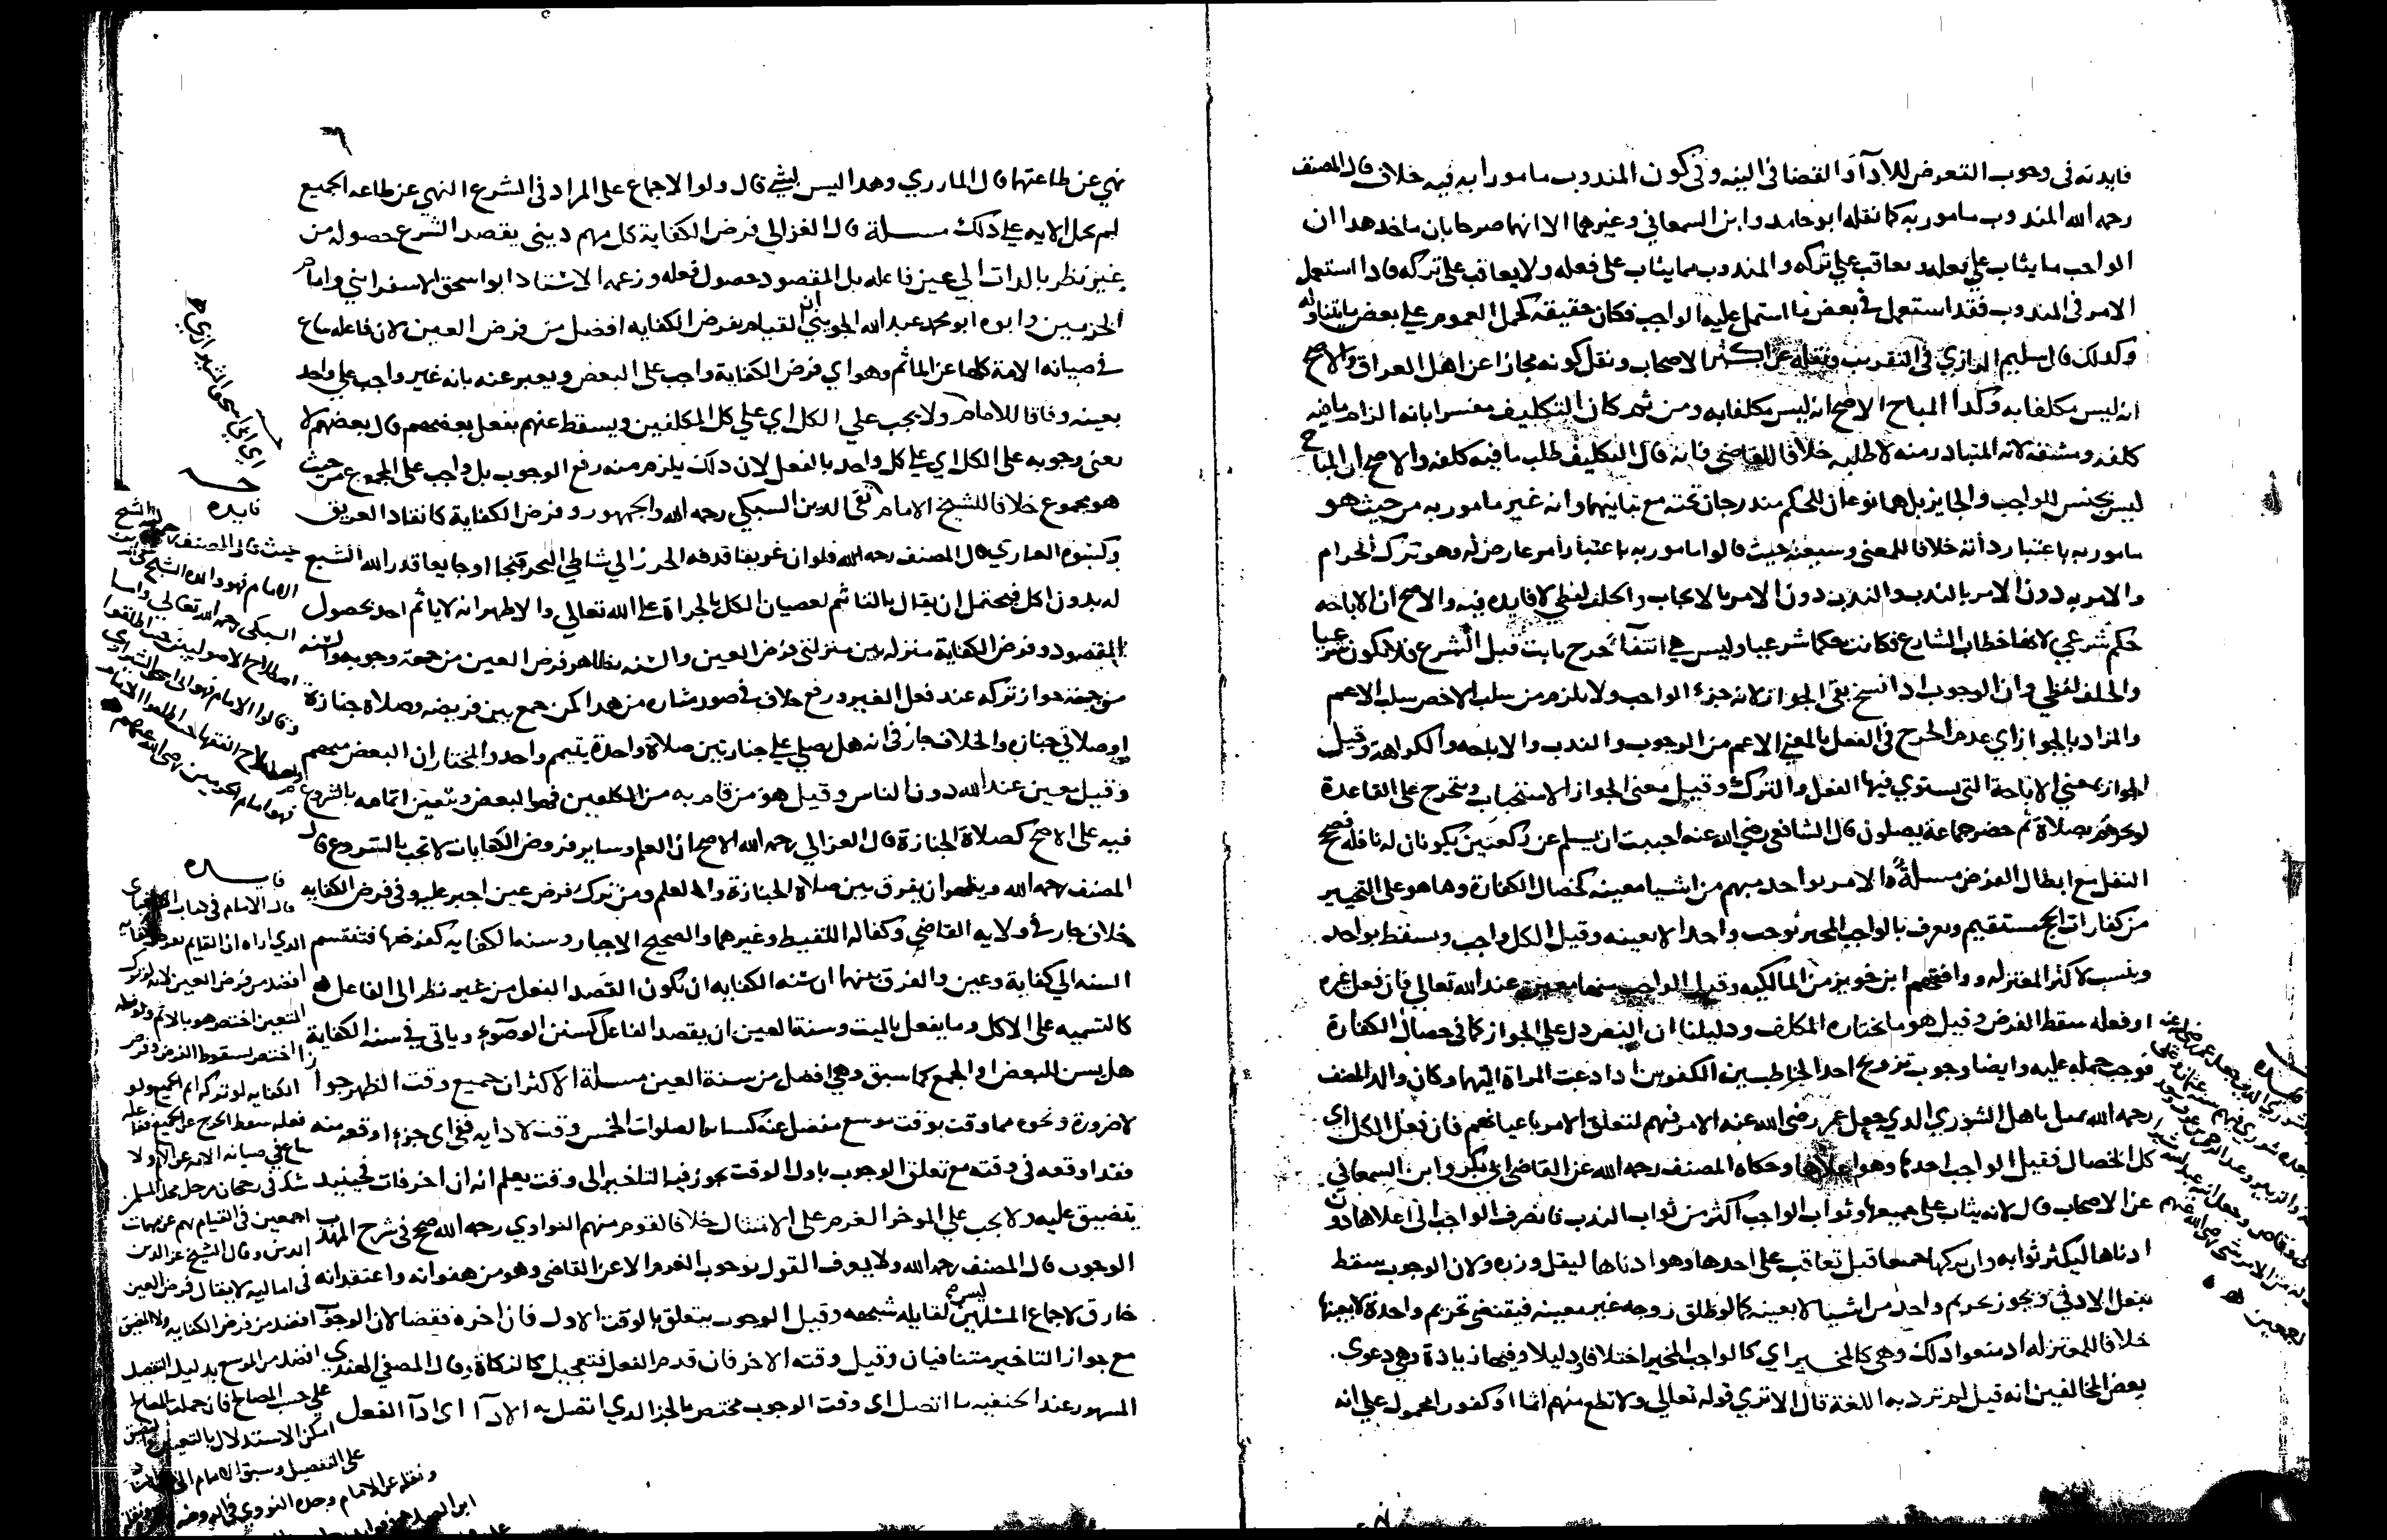 فايدته في وجوب التعرض للاداَ والقضا في النيه وفي كون المندوب مامورا به فيه خلاف قال المصنف
رحمه الله المندوب مامور به كما نقله ابو حامد وابن السمعاني وغيرهما الا انهما صرحا بان ماخذ هدا ان
الواجب ما يثاب علي فعله ويعاقب علي تركه والمندوب مما يثاب على فعله ولا يعاقب على تركه فاذا استعمل
الامر في المندوب فقد استعمل في بعض ما اشتمل عليه الواجب فكان حقيقه كحمل العموم علي بعض ما يتناوله
وكدلك قال سليم الرازي في التقريب ونقله عن اكثر الاصحاب ونقل كونه مجازا عن اهل العراق والاصح
انه ليس مكلفا به وكدا المباح الاصح انه ليس مكلفا به ومن ثم كان التكليف مفسرا بانه الزام ما فيه
كلفه ومشقه لانه المتبادر منه لا طلبه خلافا للقاضي فانه قال التكليف طلب ما فيه كلفه والاصح ان المباح
ليس بجنس للواجب والجايز بل هما نوعان للحكم مندرجان تحته مع تباينهما وانه غير مامور به من حيث هو
مامور به باعتبار داته خلافا للكعبي وشيعته حيث قالوا مامور به باعتبار امر عارض له وهو ترك الحرام
والامر به دون الامر بالندب والندب دون الامر بالايجاب والخلف لفظي لا فايده فيه والاصح ان الاباحه
حكم شرعي لانها خطاب الشارع فكانت حكما شرعيا وليس هي انتفاَ حرج ثابت قبل الشرع فلا يكون شرعيا
والخلف لفظي وان الوجوب ادا نسخ بقي الجواز لانه جزء الواجب ولا يلزم من سلب الاخص سلب الاعم
والمراد بالجواز اي عدم الحرج في الفعل بالمعني الاعم من الوجوب والندب والاباحه والكراهة وقيل
الجواز بمعني الاباحة التي يستوي فيها الفعل والترك وقيل معني الجواز الاستحباب ويتخرج على القاعدة
لو تحرم بصلاة ثم حضر جماعة يصلون قال الشافعي رضي الله عنه احببت ان يسلم عن ركعتين يكونان له نافله فصح
النفل مع ابطال الفرض مسلة والامر بواحد مبهم من اشيا معينه كخصال الكفارة وها هو على التخيير
من كفارات الحج مستقيم ويعرف بالواجب المخير يوجب واحدا لا بعينه وقيل الكل واجب ويسقط بواحد
وينسب لاكثر المعتزله ووافقهم ابن خويز من المالكيه وقيل الواجب منها معين عند الله تعالي فان فعل غيره
او فعله سقط الفرض وقيل هو ما يختاره المكلف ودليلنا ان النص دل علي الجواز كما في خصال الكفارة
فوجب حمله عليه وايضا وجوب تزويج احد الخاطبين الكفوين ادا دعت المراة اليهما وكان والد المصنف
رحمه الله يمثل باهل الشوري الدي جعل عمر رضي الله عنه الامر فيهم لتعلق الامر باعيانهم فان فعل المكلف
كل الخصال فقيل الواجب احدها وهو اعلاها وحكاه المصنف رحمه الله عن القاضي ابي بكر وابن السمعاني
عن الاصحاب قال لانه يثاب على جميعها وثواب الواجب اكثر من ثواب الندب فانصرف الواجب الى اعلاها دون
ادناها ليكثر ثوابه وان تركها جميعا قيل يعاقب على احدها وهو ادناها ليقل وزره ولان الوجوب سقط
بفعل الادني ويجوز تحريم واحد من اشيا لا بعينه كما لو طلق زوجه غير معينه فيقتضي تحريم واحدة لا بعينها
خلافا للمعتزله اد منعوا دلك وهي كالمخير اي كالواجب المخير اختلافا ودليلا وفيها زيادة وهي دعوى
بعض المخالفين انه قيل لم ترد به اللغة قال الا تري قوله تعالي ولا تطع منهم اثما او كفورا محمول علي انه
نهي عن طاعتهما قال المازري وهدا ليس بشي قال ولولا الاجماع على المراد في الشرع النهي عن طاعه الجميع
لم تحمل الايه على دلك مسلة قال الغزالي فرض الكفاية كل مهم ديني يقصد الشرع حصوله من
غير نظر بالذات الي عين فاعله بل المقصود حصول فعله وزعم الاستاد ابو اسحق الاسفرايني وامام
الحرمين وابوه ابو محمد عبد الله الجويني ان القيام بفرض الكفايه افضل من فرض العين لان فاعله ساع
في صيانه الامة كلها عن الماثم وهو اي فرض الكفاية واجب على البعض ويعبر عنه بانه غير واجب علي واحد
بعينه وفاقا للامام ولا يجب علي الكل اي علي كل المكلفين ويسقط عنهم بفعل بعضهم قال بعضهم لا
يعني وجوبه على الكل اي علي كل واحد بالفعل لان دلك يلزم منه رفع الوجوب بل واجب على المجموع من حيث
هو مجموع خلافا للشيخ الامام تقي الدين السبكي رحمه الله والجمهور وفرض الكفاية كانقاد الغريق
وكسوة العاري قال المصنف رحمه الله فلو ان غريقا قدفه البحر الي شاطي البحر فنجا او جايعا قدر الله الشبع
له بدون اكل فيحتمل ان يقال بالتاثم لعصيان الكل بالجراة على الله تعالي والاظهر انه لا ياثم احد بحصول
المقصود وفرض الكفاية منزله بين منزلتي فرض العين والسنه فظاهر فرض العين من جهة وجوبه والسنه
من جهة جواز تركه عند فعل الغير ورفع خلاف في صور مثاره من هدا كمن جمع بين فريضه وصلاة جنازة
او صلاتي جنازه والخلاف جار في انه هل يصلي علي جنازتين صلاة واحدة بتيمم واحد والمختار ان البعض مبهم
وقيل معين عند الله دون الناس وقيل هو من قام به من المكلفين فهو البعض ويتعين اتمامه بالشروع
فيه على الاصح كصلاة الجنازة قال الغزالي رحمه الله الاصح ان العلم وساير فروض الكفايات لا تجب بالشروع قال
المصنف رحمه الله ويظهر ان يفرق بين صلاة الجنازة والعلم ومن ترك فرض عين اجبر عليه وفي فرض الكفايه
خلاف جار في ولايه القاضي وكفاله اللقيط وغيرهما والصحيح الاجبار وسنه الكفايه كفرضها فتنقسم
السنه الي كفاية وعين والفرق بينهما ان سنه الكفايه ان يكون القصد الفعل من غير نظر الى الفاعل
كالتسميه على الاكل وما يفعل بالميت وسنة العين ان يقصد الفاعل كسنن الوضوء وياتي في سنه الكفاية
هل يسن للبعض او الجمع كما سبق وهي افضل من سنة العين مسلة الاكثر ان جميع وقت الظهر جوازا
لا ضرورة ونحوه مما وقت بوقت موسع يفضل عنه كساير الصلوات الخمس وقت لادايه ففي اي جزء اوقعه منه
فقد اوقعه في وقته مع تعلق الوجوب باول الوقت يجوز فيه التاخير الى وقت يعلم انه ان اخر فات فحينيد
يتضيق عليه ولا يجب علي الموخر العزم على الامتثال خلافا لقوم منهم النواوي رحمه الله صح في شرح المهدب
الوجوب قال المصنف رحمه الله ولا يعرف القول بوجوب العزم الا عن القاضي وهو من هفواته واعتقد انه
خارق لاجماع المسلمين لقايليه شبهه وقيل الوجوب يتعلق بالوقت الاول فان اخره فقضا لان الوجوب
مع جواز التاخير متنافيان وقيل وقته الاخر فان قدم الفعل فتعجيل كالزكاة قال الصفي الهندي
المشهور عند الحنفيه ما اتصل اي وقت الوجوب مختص بالجز الدي اتصل به الاداَ اي داَ الفعل
اي ابي اسحق الشيرازي
فايده
حيث قال المصنف الشيخ
الامام فهو والده الشيخ تقي الدين
السبكي رحمه الله تعالي واما
اصطلاح الاصوليين حيث اطلقوا
وقالوا الامام فهو
اصطلاح الفقها حيث اطلقوا الامام
فهو امام الحرمين رضي الله عنهم
فايده
قال الامام في كتاب
الدي اراه ان القايم بفرض الكفايه
افضل من فرض العين لانه لو ترك
التعين اختص هو بالاثم ولو فعله
اختص بسقوط الفرض وفرض
الكفايه لو تركه اثم الجميع ولو
فعله سقط الحرج عن الجميع ففاعله
ساع في صيانه الامه عن الاثم ولا
شك في رجحان من حل محل المسلمين
اجمعين في القيام بهم عن مهمات
الدين وقال الشيخ عز الدين
في اماليه لا يقال فرض العين
افضل من فرض الكفايه ولا المضيق
افضل من الموسع بدليل التفضيل
علي حسب المصالح فان جهلت المصالح
امكن الاستدلال بالتعيين
على التفضيل وسبق الامام
ونقله عن الامام وحده النووي في الروضه